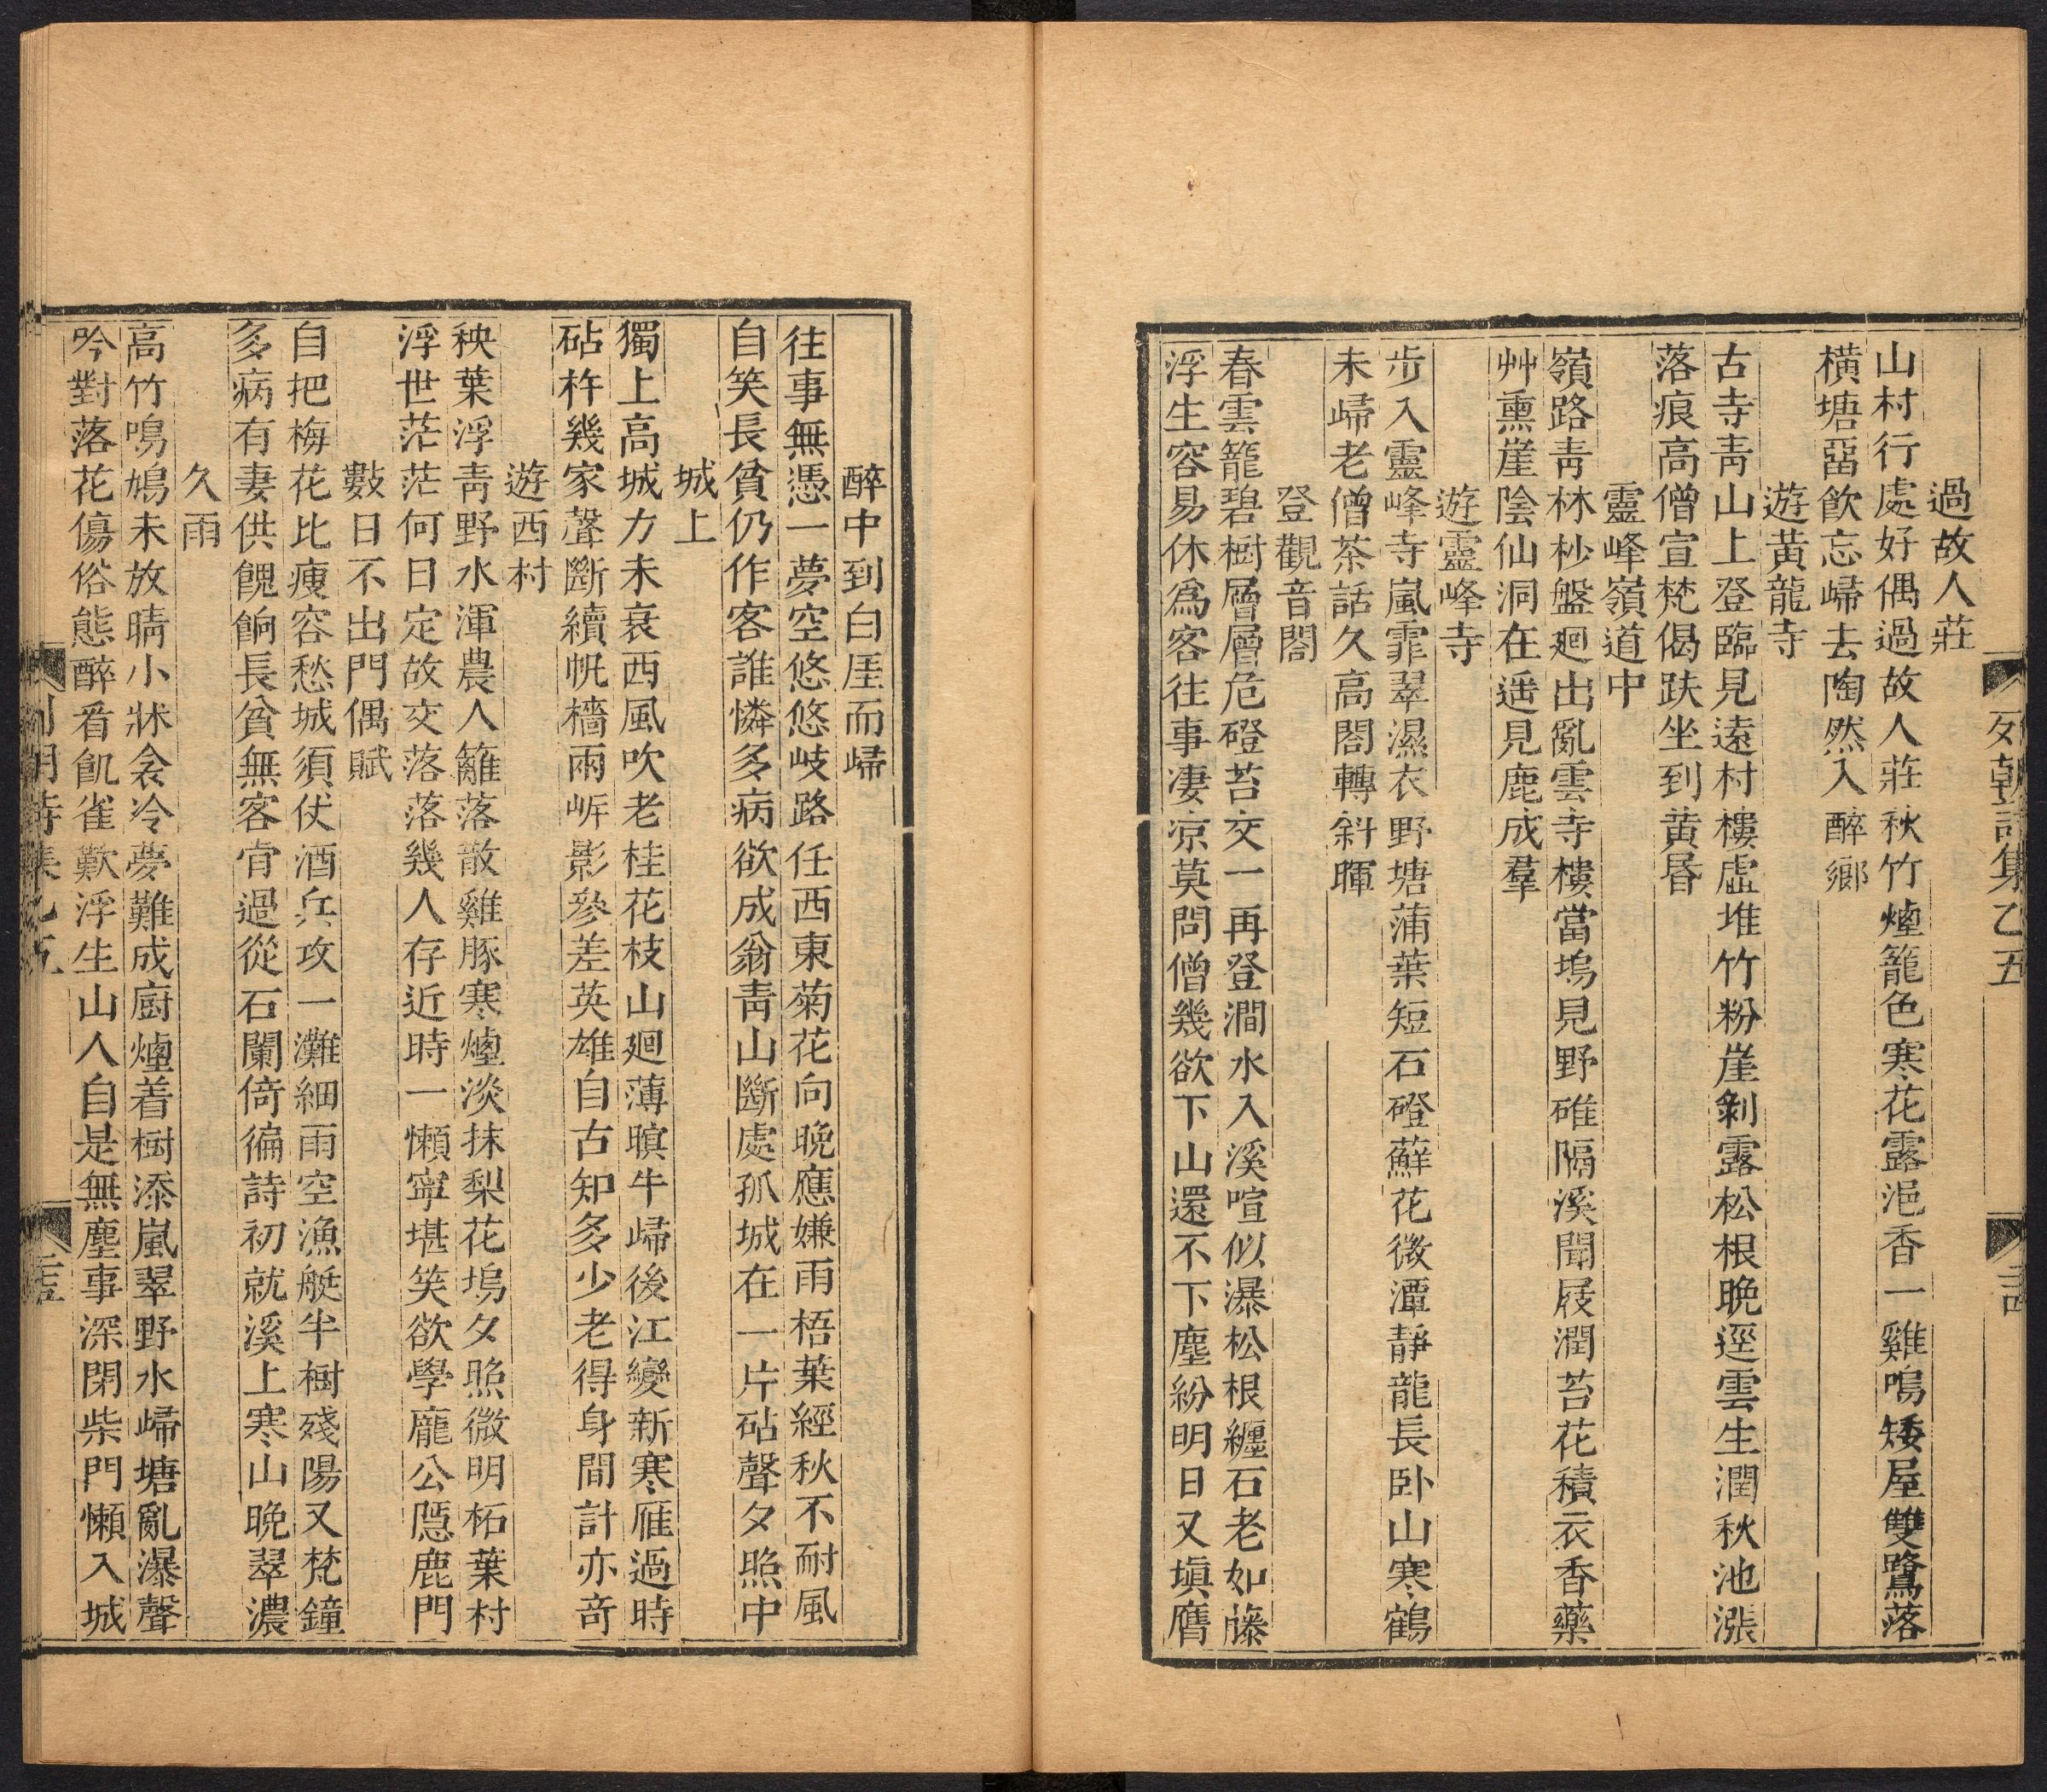 過故人莊
山村行處好偶過故人莊秋竹煙籠色寒花露浥香一雞鳴矮屋雙鷺落
橫塘畱飲忘歸去陶然入醉鄉
遊黃龍寺
古寺靑山上登臨見遠村樓虛堆竹粉崖剝露松根晚逕雲生潤秋池漲
落痕高僧宣梵偈趺坐到黃昏
靈峰嶺道中
嶺路靑林杪盤廻出亂雲寺樓當塢見野碓隔溪聞屐潤苔花積衣香藥
艸熏崖陰仙洞在遥見鹿成羣
遊靈峰寺
步入靈峰寺嵐霏翠濕衣野塘蒲葉短石磴蘚花微潭靜龍長卧山寒鶴
未歸老僧茶話久高閣轉斜暉
登觀音閣
春雲籠碧樹層層危磴苔交一再登澗水入溪喧似瀑松根纏石老如藤
浮生容易休爲客往事凄凉莫問僧幾欲下山還不下塵紛明日又塡膺
列朝詩集乙五
醉中到白厓而歸
往事無憑一夢空悠悠岐路任西東菊花向晚應嫌雨梧葉經秋不耐風
自笑長貧仍作客誰憐多病欲成翁靑山斷處孤城在一片砧聲夕照中
城上
獨上高城力未衰西風吹老桂花枝山廻薄暝牛歸後江變新寒雁過時
砧杵幾家聲斷續帆檣兩岸影參差英雄自古知多少老得身間計亦奇
遊西村
秧葉浮靑野水渾農人籬落散雞豚寒煙淡抹梨花塢夕照微明柘葉村
浮世茫茫何日定故交落落幾人存近時一懶寧堪笑欲學龐公隱鹿門
數日不出門偶賦
自把梅花比瘦容愁城須仗酒兵攻一灘細雨空漁艇半樹殘陽又梵鐘
多病有妻供餽餉長貧無客肯過從石闌倚徧詩初就溪上寒山晚翠濃
久雨
高竹鳴鳩未放晴小牀衾冷夢難成廚煙着樹添嵐翠野水歸塘亂瀑聲
吟對落花傷俗態醉看飢雀歎浮生山人自是無塵事深閉柴門懶入城
列朝詩集乙五